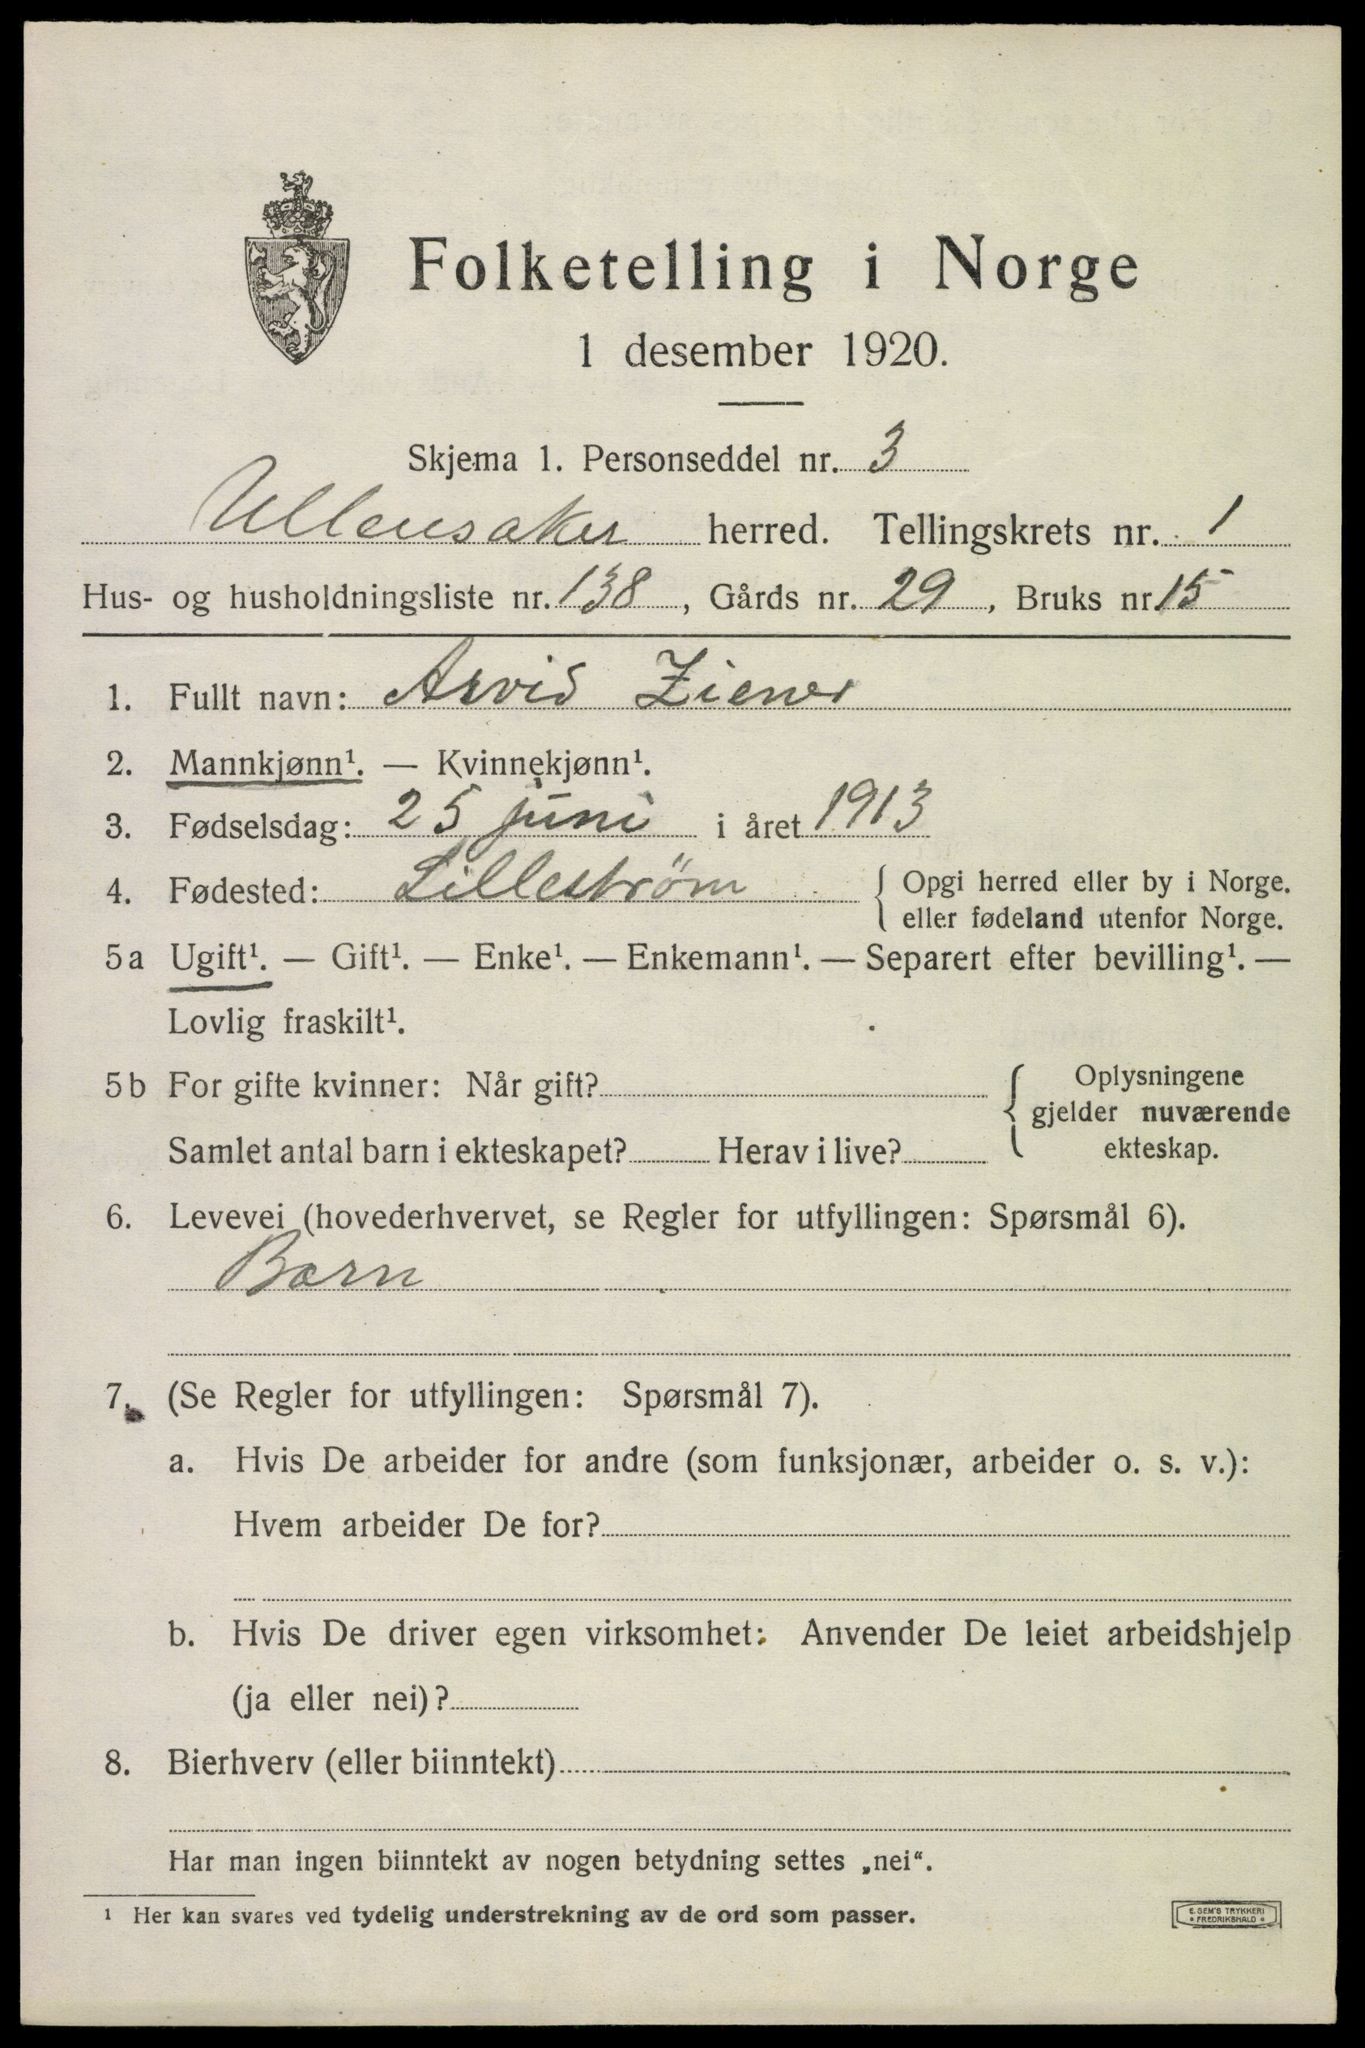 Folketelling i Norge
1 desember 1920.
Skjema 1. Personseddel nr. 3
Ullensaker herred. Tellingskrets nr. 1
Hus- og husholdningsliste nr. 138, Gårds nr. 29, Bruks nr. 15
1. Fullt navn: Arvid Ziener
2. Mannkjønn¹. — Kvinnekjønn¹.
3. Fødselsdag: 25 juni i året 1913
4. Fødested: Lillestrøm { Opgi herred eller by i Norge.
eller fødeland utenfor Norge.
5a Ugift¹. — Gift¹. — Enke¹. — Enkemann¹. — Separert efter bevilling¹. —
Lovlig fraskilt¹.
5b For gifte kvinner: Når gift? { Oplysningene
gjelder nuværende
Samlet antal barn i ekteskapet? Herav i live? ekteskap.
6. Levevei (hovederhvervet, se Regler for utfyllingen: Spørsmål 6).
Barn
7. (Se Regler for utfyllingen: Spørsmål 7).
a. Hvis De arbeider for andre (som funksjonær, arbeider o. s. v.):
Hvem arbeider De for?
b. Hvis De driver egen virksomhet: Anvender De leiet arbeidshjelp
(ja eller nei)?
8. Bierhverv (eller biinntekt)
Har man ingen biinntekt av nogen betydning settes „nei“.
¹ Her kan svares ved tydelig understrekning av de ord som passer.
E. SEM'S TRYKKERI
• FREDRIKSHALD •